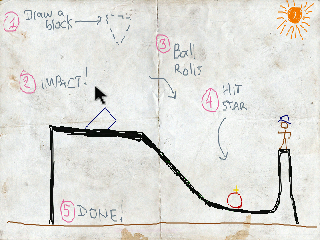 1 Draw a
block
2 iMPACT!
3 Ball
Rolls
4 HiT
STAR
5 DONE.